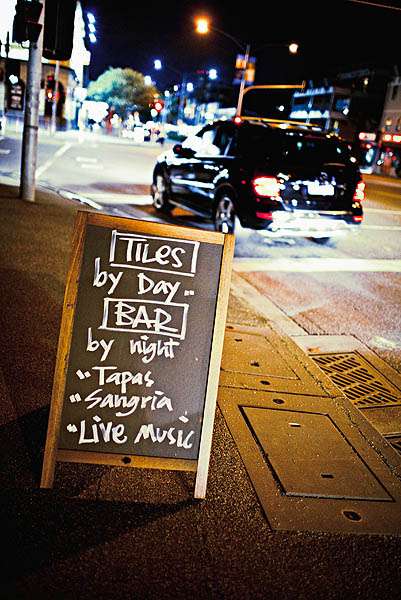 TILES
by DAY...
BAR
by night
"Tapas
"Sangria
"Live Music